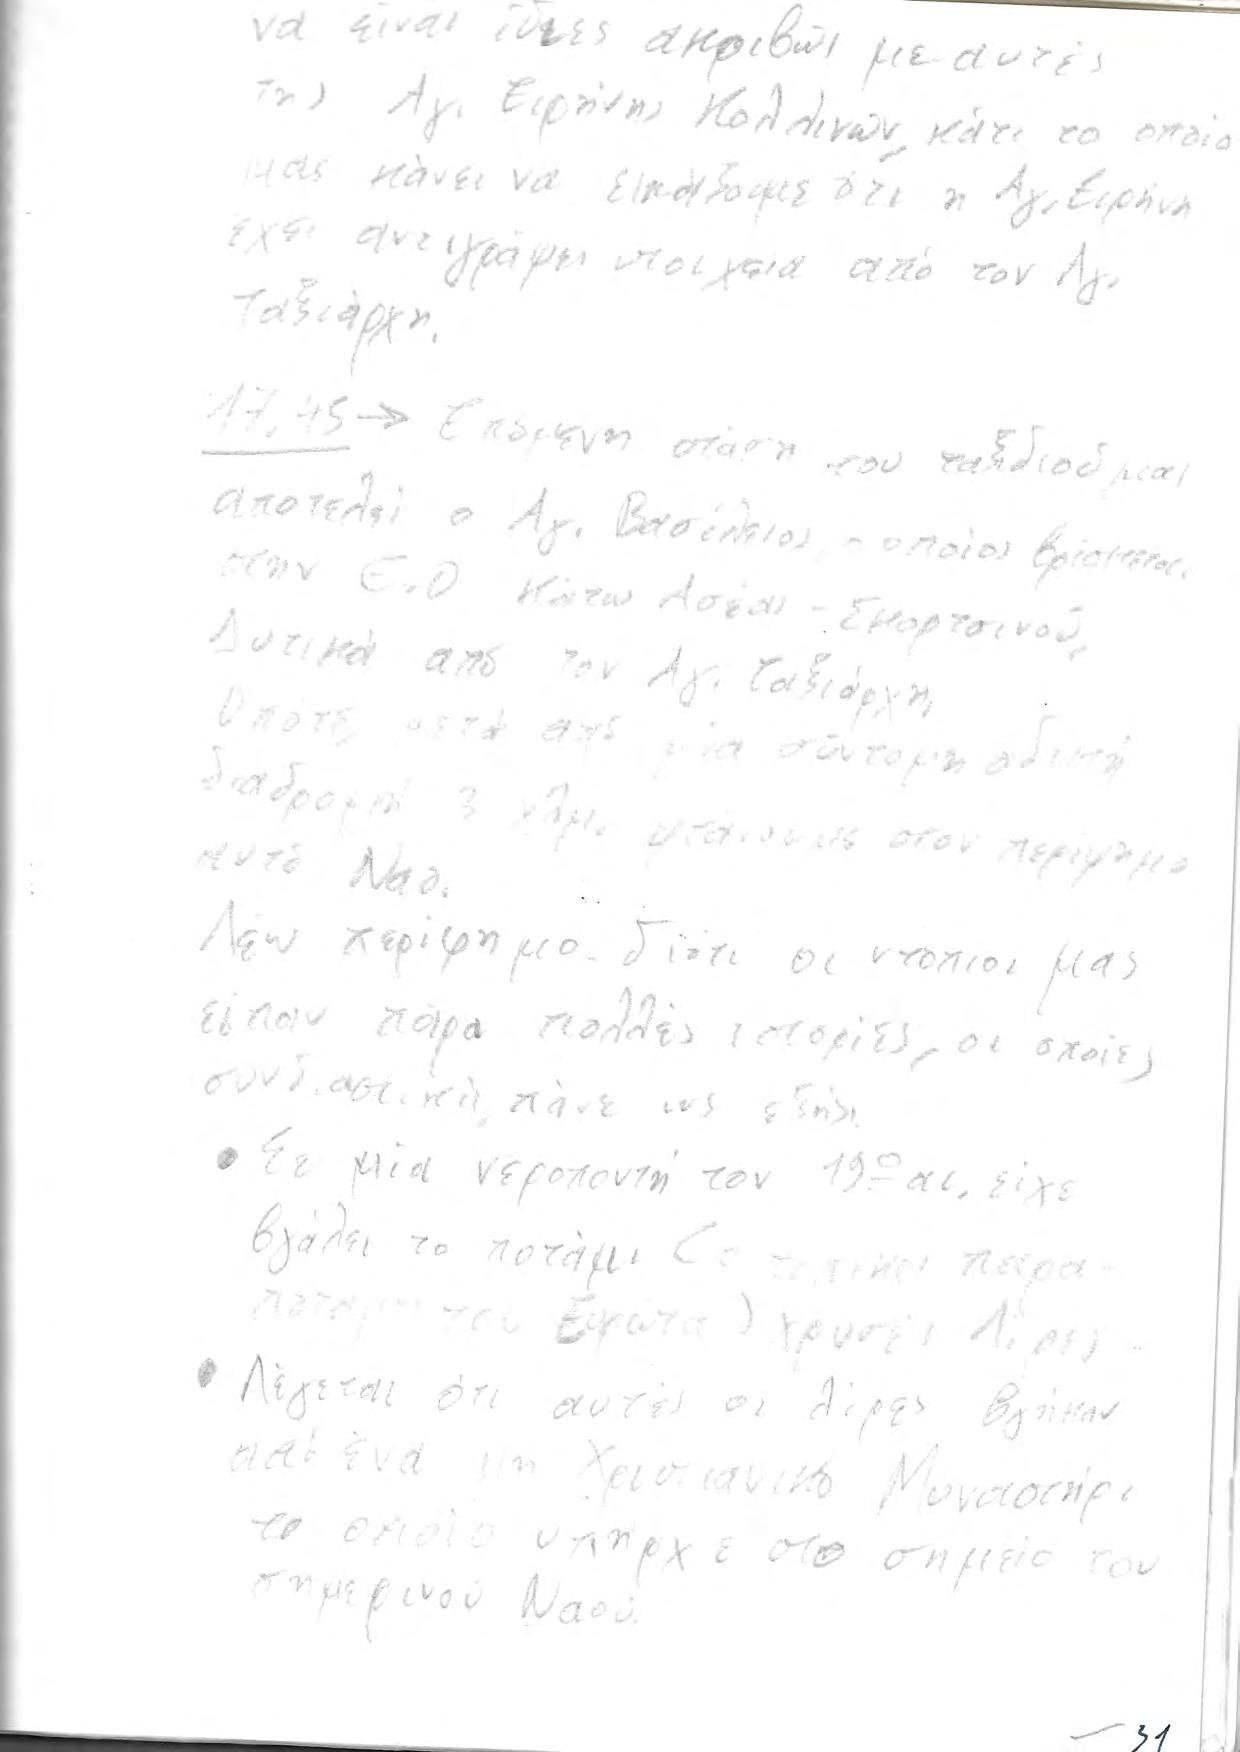 να είναι ίδιες ακριβώς με αυτές
της Αγ. Ειρήνης Κολλινών, κάτι το οποίο
μας κάνει να εικάζουμε ότι η Αγ. Ειρήνη
έχει αντιγράψει στοιχεία από τον Αγ.
Ταξιάρχη.
17,45 → Επόμενη στάση του ταξιδιού μας
αποτελεί ο Αγ. Βασίλειος, ο οποίος βρίσκεται
στην Ε.Ο Κάτω Ασέας - Σκορτσινού,
Δυτικά από τον Αγ. Ταξιάρχη,
Οπότε, μετά από μία σύντομη οδική
διαδρομή 3 χλμ. φτάνουμε στον περίφημο
αυτό Ναό.
Λέω περίφημο διότι οι ντόπιοι μας
είπαν πάρα πολλές ιστορίες, οι οποίες
συνδιαστικά, πάνε ως εξής:
• Σε μία νεροποντή τον 19ο αι. είχε
βγάλει το ποτάμι (ο τοπικός παρα-
πόταμος του Ευρώτα) χρυσές λίρες
• Λέγεται ότι αυτές οι λίρες βγήκαν
από ένα μη Χριστιανικό Μοναστήρι
το οποίο υπήρχε στο σημείο του
σημερινού Ναού.
31